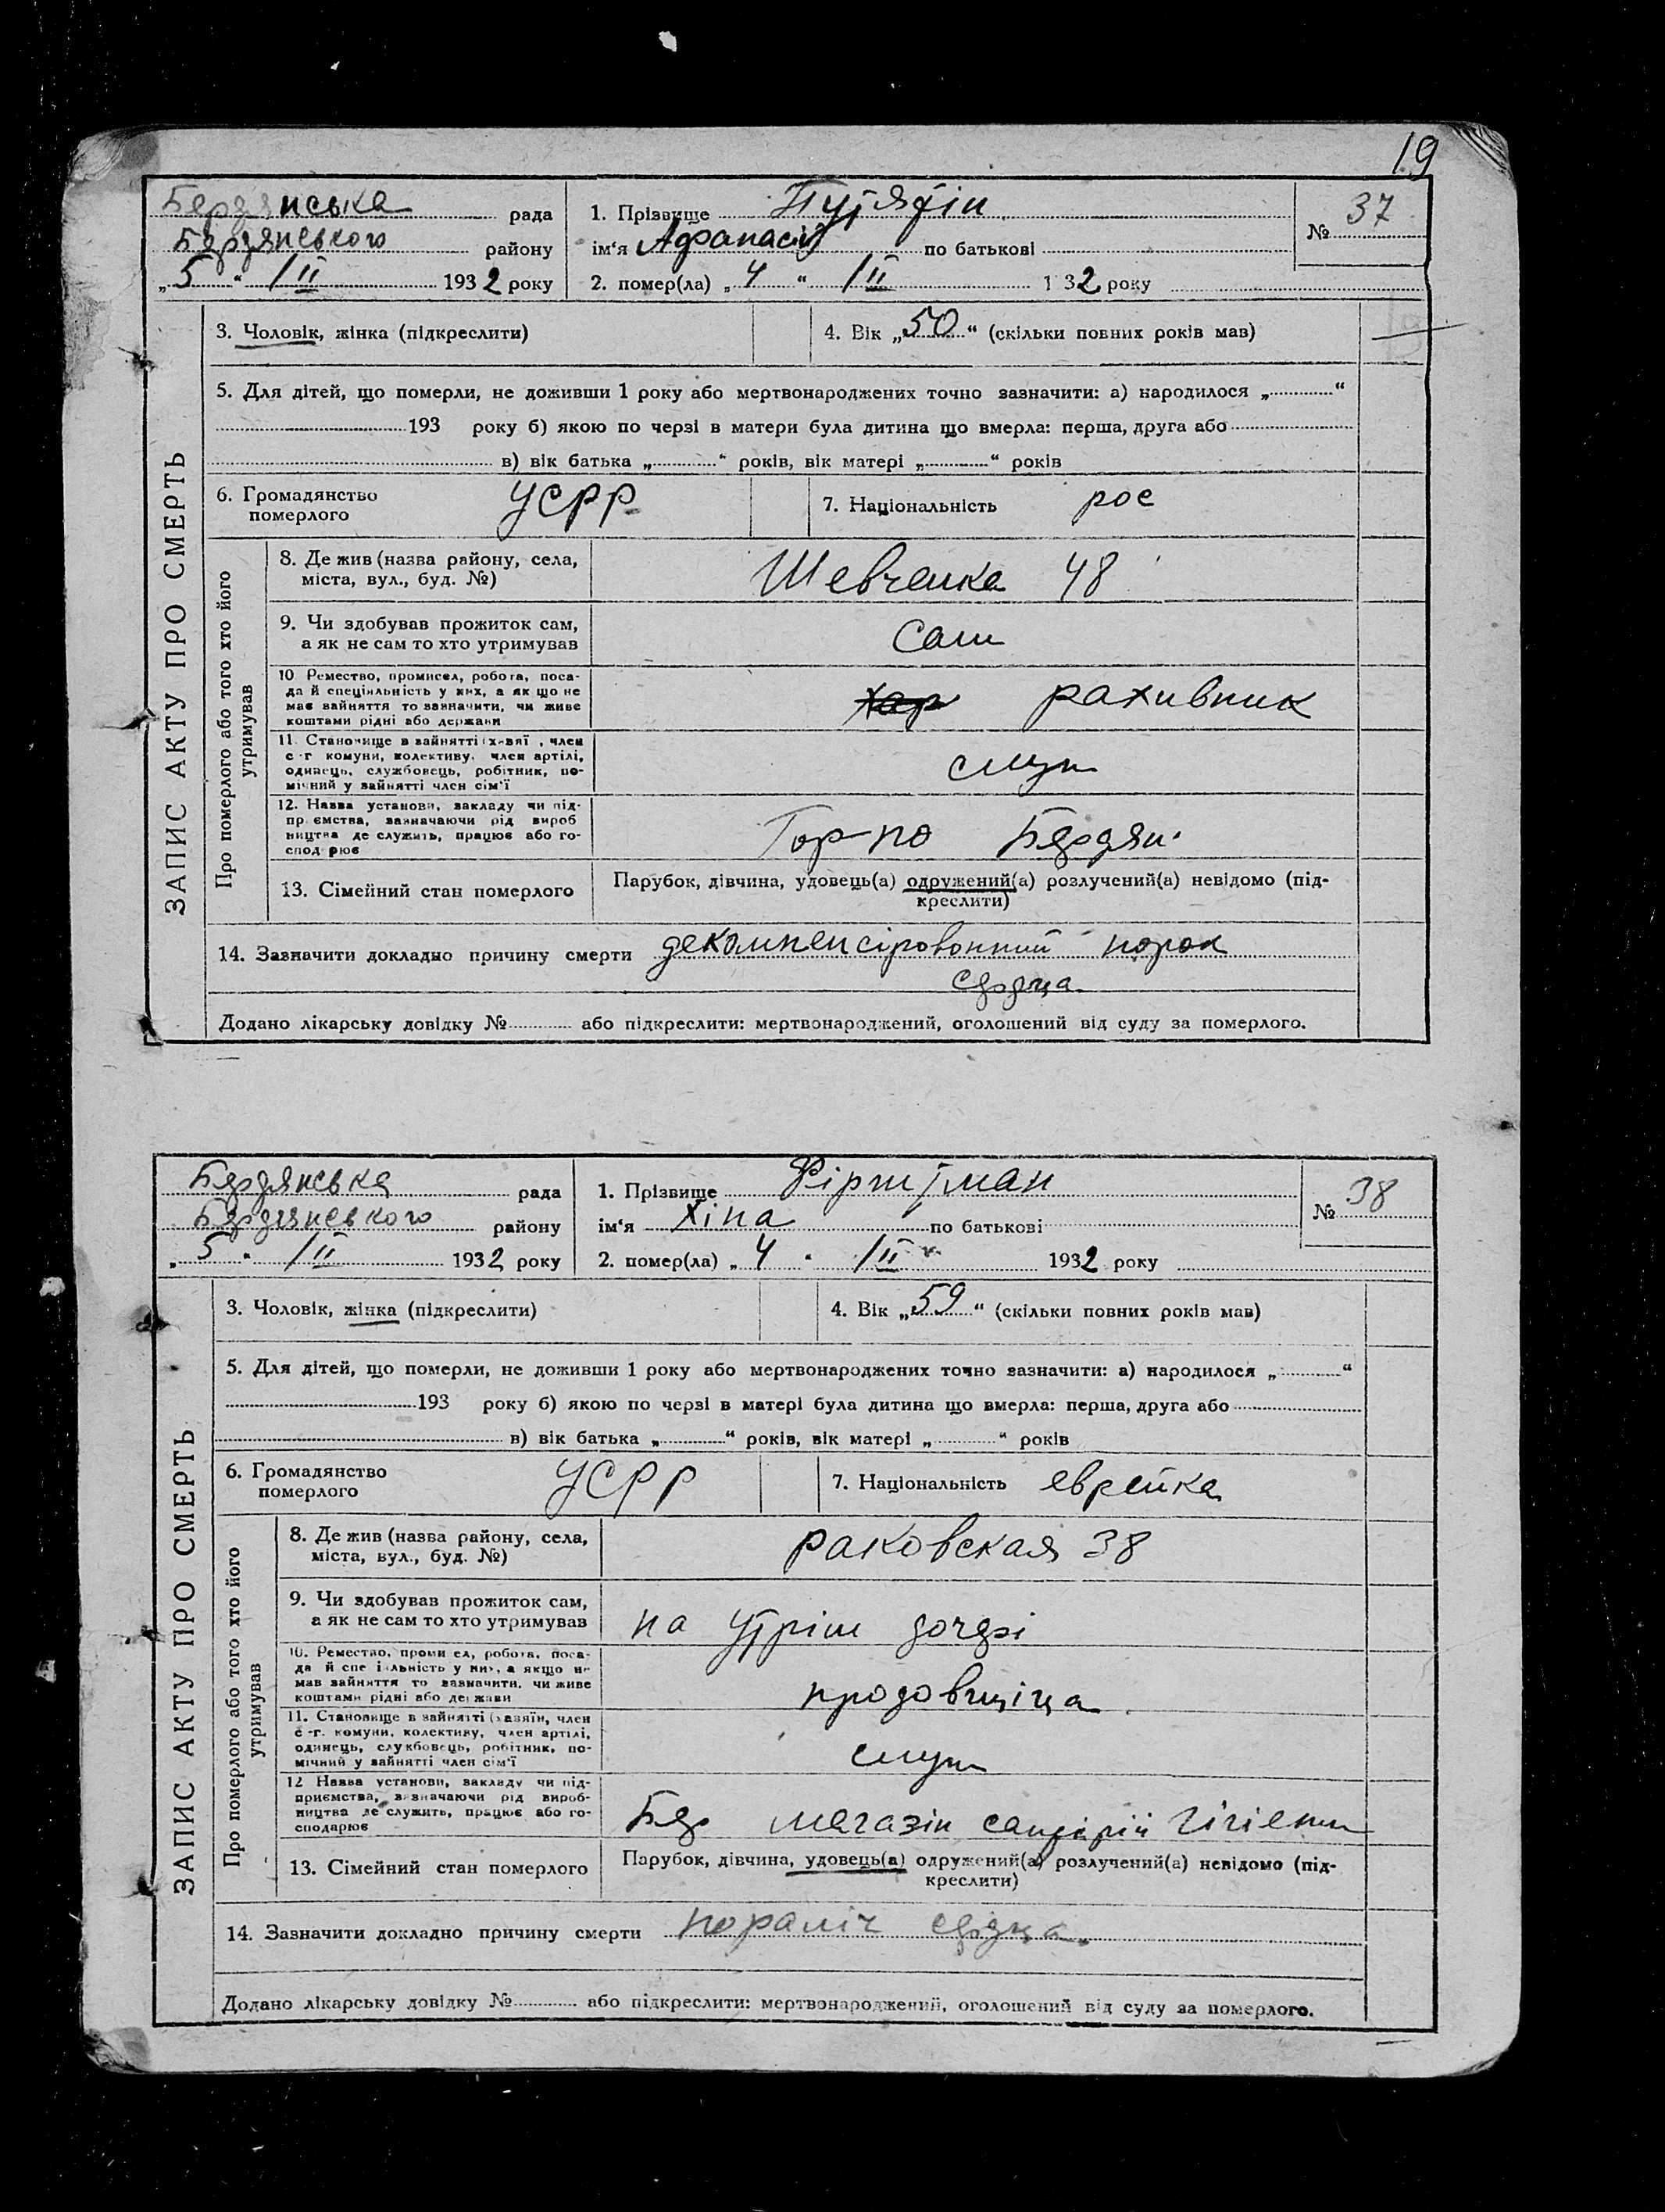 19
Бердянська рада
Бердянського району
„5“ III 1932 року
1. Прізвище Путятін
ім‘я Афанасій по батькові
2. помер(ла) „4“ III 1 32 року
№ 37
ЗАПИС АКТУ ПРО СМЕРТЬ
3. Чоловік, жінка (підкреслити)
4. Вік „50“ (скільки повних років мав)
5. Для дітей, що померли, не доживши 1 року або мертвонароджених точно зазначити: а) народилося „ “
193 року б) якою по черзі в матери була дитина що вмерла: перша, друга або
в) вік батька „ “ років, вік матері „ “ років
6. Громадянство
померлого
УСРР
7. Національність рос
Про померлого або того хто його
утримував
8. Де жив (назва району, села,
міста, вул., буд. №)
Шевченка 48
9. Чи здобував прожиток сам,
а як не сам то хто утримував
сам
10 Ремество, промисел, робота, поса-
да й спеціяльність у них, а як що не
має зайняття то зазначити, чи живе
коштами рідні або держави
хар рахивник
11. Становище в зайнятті , член
с-г комуни, колективу, член артілі,
одинець, службовець, робітник, по-
мічний у зайнятті член сім‘ї
служ
12. Назва установи, закладу чи під-
пр ємства, зазначаючи рід вироб
ництва де служить, працює або го-
спод рює
Гор-по Бердян.
13. Сімейний стан померлого
Парубок, дівчина, удовець(а) одружений(а) розлучений(а) невідомо (під-
креслити)
14. Зазначити докладно причину смерти декомпенсірованний порок
сердца
Додано лікарську довідку № або підкреслити: мертвонароджений, оголошений від суду за померлого.
Бердянська рада
Бердянського району
„5“ III 1932 року
1. Прізвище
ім‘я Хіна по батькові
2. помер(ла) „4“ III 1932 року
№ 38
ЗАПИС АКТУ ПРО СМЕРТЬ
3. Чоловік, жінка (підкреслити)
4. Вік „59“ (скільки повних років мав)
5. Для дітей, що померли, не доживши 1 року або мертвонароджених точно зазначити: а) народилося „ “
193 року б) якою по черзі в матері була дитина що вмерла: перша, друга або
в) вік батька „ “ років, вік матері „ “ років
6. Громадянство
померлого
УСРР
7. Національність еврейка
Про померлого або того хто його
утримував
8. Де жив (назва району, села,
міста, вул., буд. №)
раковская 38
9. Чи здобував прожиток сам,
а як не сам то хто утримував
на утрім дочері
10. Ремество, проми ел, робота, поса-
да й спе іяльність у них, а якщо не
мав зайняття то зазначити, чи живе
коштами рідні або держави
продовщіца
11. Становище в зайнятті (хазяїн, член
с-г. комуни, колективу, член артілі,
одинець, службовець, робітник, по-
мічний у зайнятті член сім‘ї
служ
12 Назва установи, закладу чи під-
приємства, зазначаючи рід вироб-
ництва де служить, працює або го-
сподарює
Бер магазін санітарій гігіени
13. Сімейний стан померлого
Парубок, дівчина, удовець(а) одружений(а) розлучений(а) невідомо (під-
креслити)
14. Зазначити докладно причину смерти пораліч сердца
Додано лікарську довідку № або підкреслити: мертвонароджений, оголошений від суду за померлого.